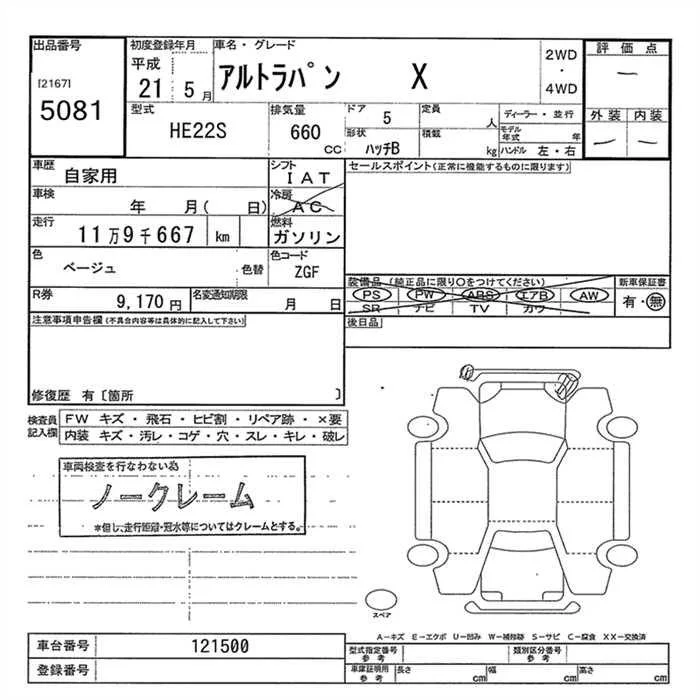 出品番号
[2167]
5081
初度登録年月
平成
21 5 月
車名・グレード
アルトラパン X
2WD
・
4WD
評価点
―
外装 内装
― ―
型式
HE22S
排気量
660
CC
ドア
5
形状
ハッチB
定員
人
積載
kg
ディーラー・並行
モデル年式 年
ハンドル 左・右
車歴
自家用
シフト
IAT
車検
年 月( 日)
冷房
AC
走行
11万9千667 km
燃料
ガソリン
色
ベージュ
色替
色コード
ZGF
R券
9,170 円
名変通知期限
月 日
セールスポイント(正常に機能するものに限ります)
装備品(純正品に限り〇をつけてください)
PS PW ABS エアB AW
SR ナビ TV カワ
新車保証書
有・無
後日品
注意事項申告欄(不具合内容等は具体的に記入して下さい)
修復歴 有〔箇所 〕
検査員記入欄
FW キズ・飛石・ヒビ割・リペア跡・×要
内装 キズ・汚レ・コゲ・穴・スレ・キレ・破レ
車両検査を行なわない為
ノークレーム
*但し、走行距離・冠水等についてはクレームとする。
スペア
A−キズ E−エクボ U−凹み W−補修跡 S−サビ C−腐食 XX−交換済
車台番号
121500
登録番号
型式指定番号
参考
類別区分番号
参考
車庫証明用
参考
長さ cm
幅 cm
高さ cm